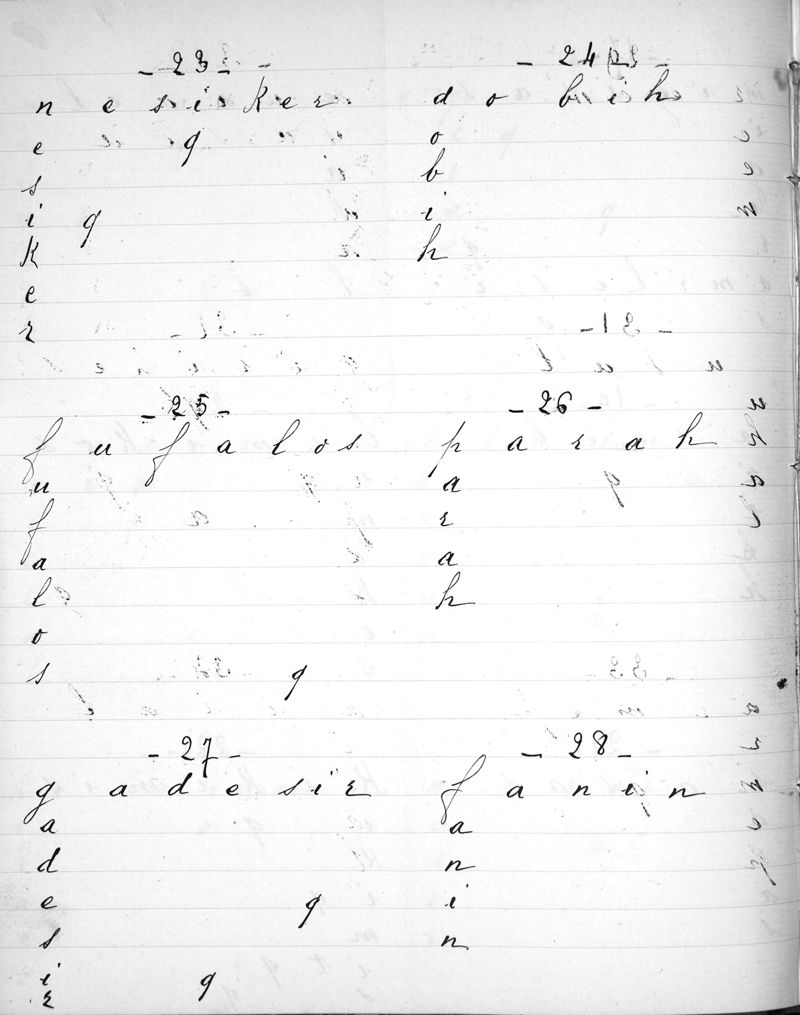 - 23 -
n e s i k e r
e q
s
i q
k
e
r
- 24
d o b i h
o
b
i
h
- 25 -
f u f a l o s
u
f
a
l
o
s q
- 26 -
p a r a h
a
r
a
h
- 27 -
g a d e s i r
a
d
e q
s
i q
r
- 28 -
f a n i n
a
n
i
n